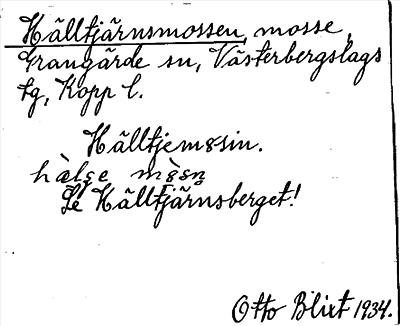 Hälltjärnsmossen, mosse,
Grangärde sn, Västerbergslags
tg, Kopp l.
Hälltjem8sin.
hàlşe m8̀sn̥
Se Hälltjärnsberget!
Otto Blixt 1934.